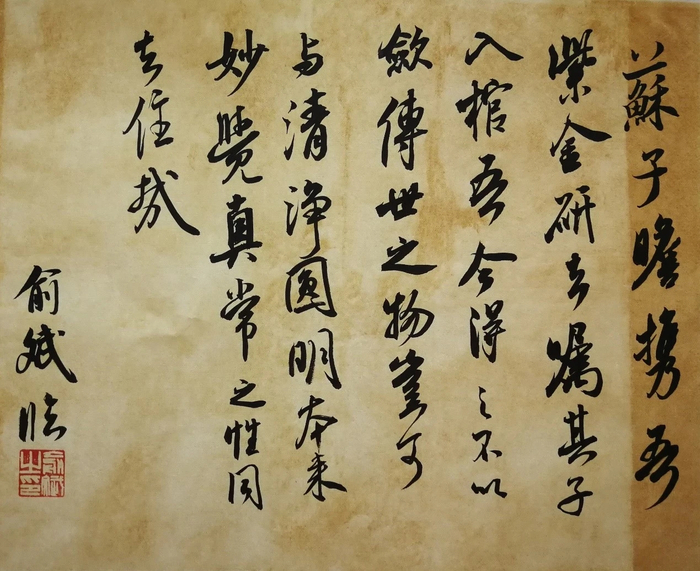 蘇子瞻携吾
紫金研去嘱其子
入棺吾今得之不以
歛傳世之物豈可
与清淨圓明本来
妙覺真常之性同
去住哉
俞斌臨